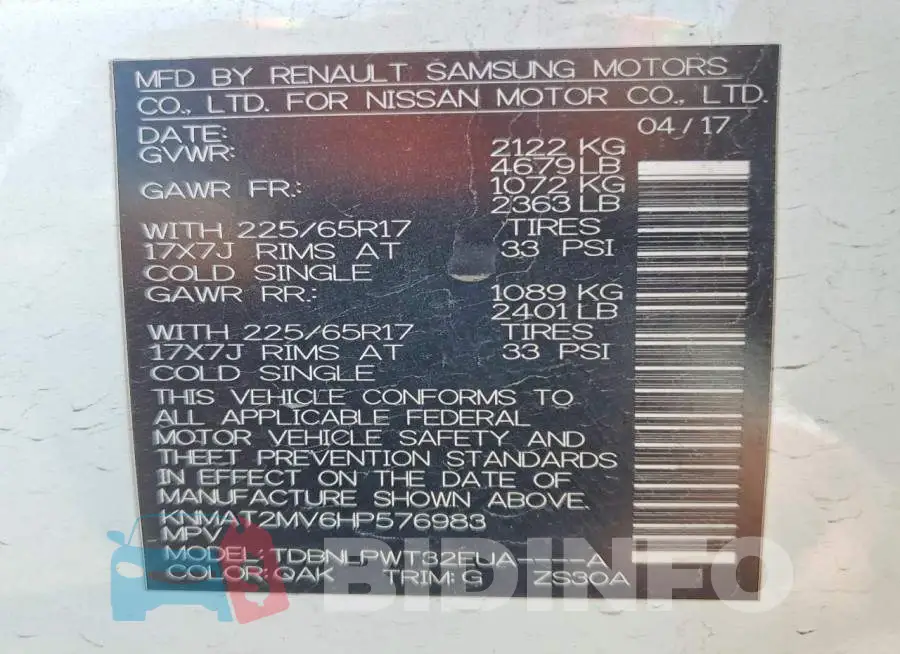 MFD BY RENAULT SAMSUNG MOTORS
CO., LTD. FOR NISSAN MOTOR CO., LTD.
DATE: 04/17
GVWR: 2122 KG
4679 LB
GAWR FR.: 1072 KG
2363 LB
WITH 225/65R17 TIRES
17X7J RIMS AT 33 PSI
COLD SINGLE
GAWR RR.: 1089 KG
2401 LB
WITH 225/65R17 TIRES
17X7J RIMS AT 33 PSI
COLD SINGLE
THIS VEHICLE CONFORMS TO
ALL APPLICABLE FEDERAL
MOTOR VEHICLE SAFETY AND
THEFT PREVENTION STANDARDS
IN EFFECT ON THE DATE OF
MANUFACTURE SHOWN ABOVE.
KNMAT2MV6HP576983
MPV
MODEL: TDBNLPWT32EUA----A
COLOR: QAK TRIM: G ZS30A
BIDINFO